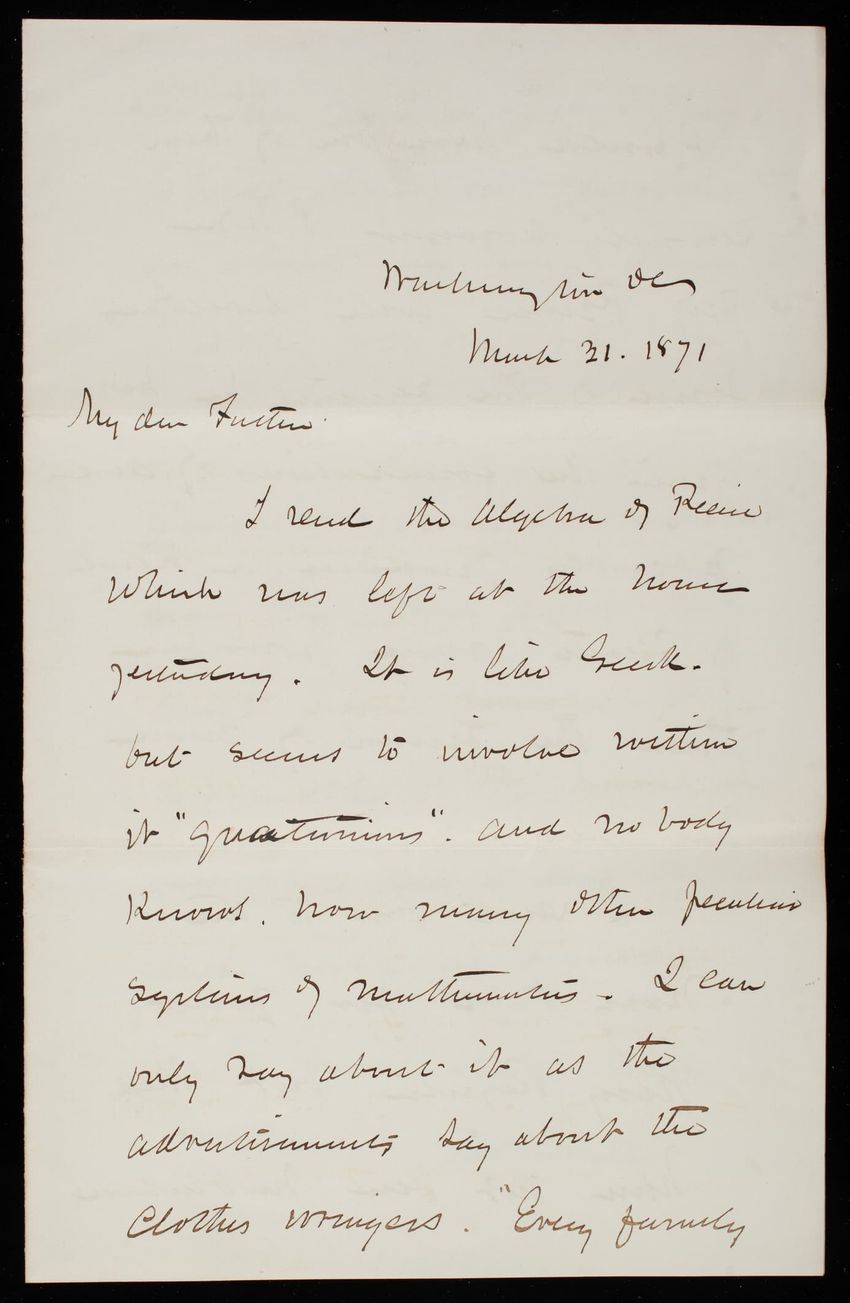 Washington DC
March 31. 1871
My dear
I read the Algebra of Peirce
which was left at the house
yesterday. It is like Greek.
but seems to involve within
it "quaternions". and nobody
knows, how many other peculiar
systems of mathematics. I can
only say about it as the
advertisements say about the
clothes wringers. "Every family